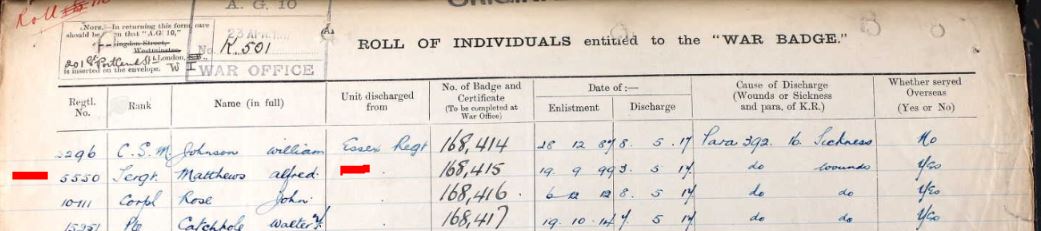 Roll
A. G. 10
NOTE.—In returning this form, care
should be taken that "A.G. 10,"
Westminster
201 Gt Portland St London,
W I
is inserted on the envelope.
No. R.501
WAR OFFICE
ROLL OF INDIVIDUALS entitled to the "WAR BADGE."
Regtl. No. Rank Name (in full) Unit discharged from No. of Badge and Certificate (To be completed at War Office) Date of:— Enlistment Discharge Cause of Discharge (Wounds or Sickness and para. of K.R.) Whether served Overseas (Yes or No)
2296 C.S.M Johnson William Essex Regt 168,414 28 12 87 8. 5. 17 Para 392. 16. Sickness No
5550 Sergt. Matthews Alfred. 168,415 19. 9 99 3. 5. 17 do wounds Yes
10111 Corpl Rose John. 168,416 6 12 12 8. 5. 17 do do Yes
Pte Catchpole Walter 168,417 19. 10. 14 7. 5 17 do do Yes